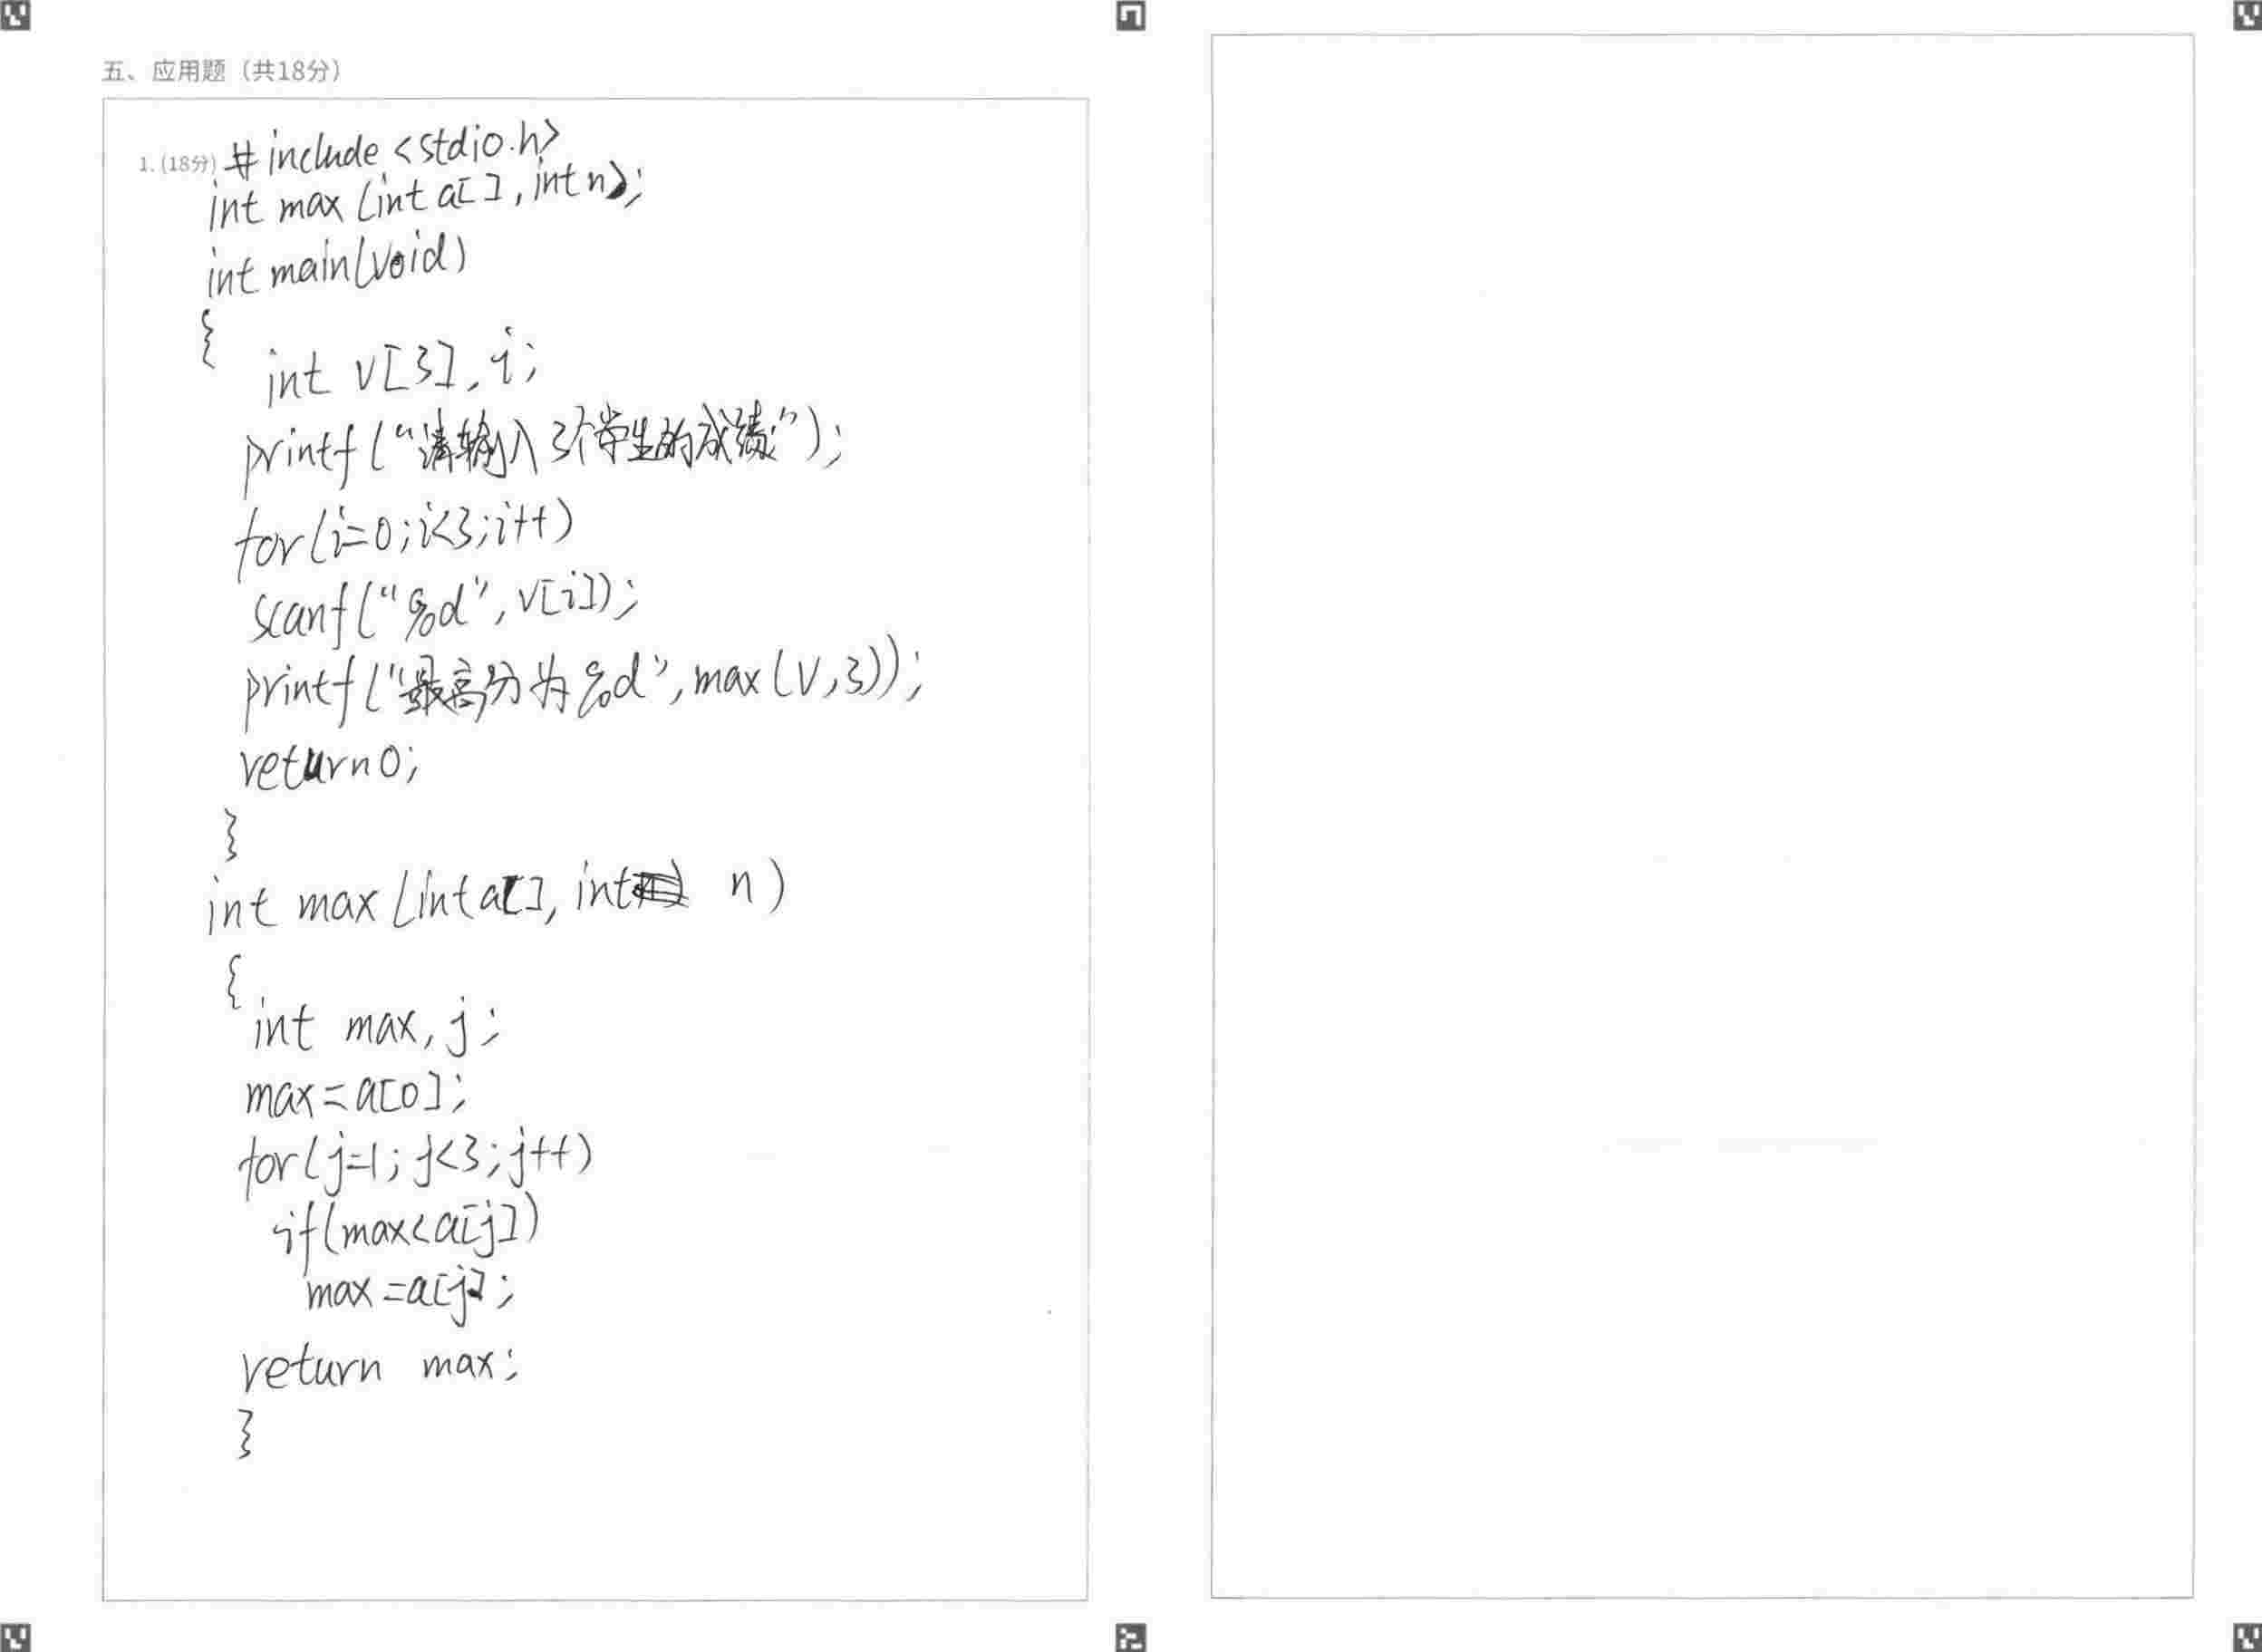 五、应用题（共18分）
1.(18分) #include <stdio.h>
int max (int a[], int n);
int main(void)
{
int v[3], i;
printf("请输入3个学生的成绩:");
for(i=0;i<3;i++)
scanf("%d", v[i]);
printf("最高分为%d", max(v,3));
return 0;
}
int max (int a[], int n)
{
int max, j;
max=a[0];
for(j=1; j<3; j++)
if(max<a[j])
max=a[j];
return max;
}